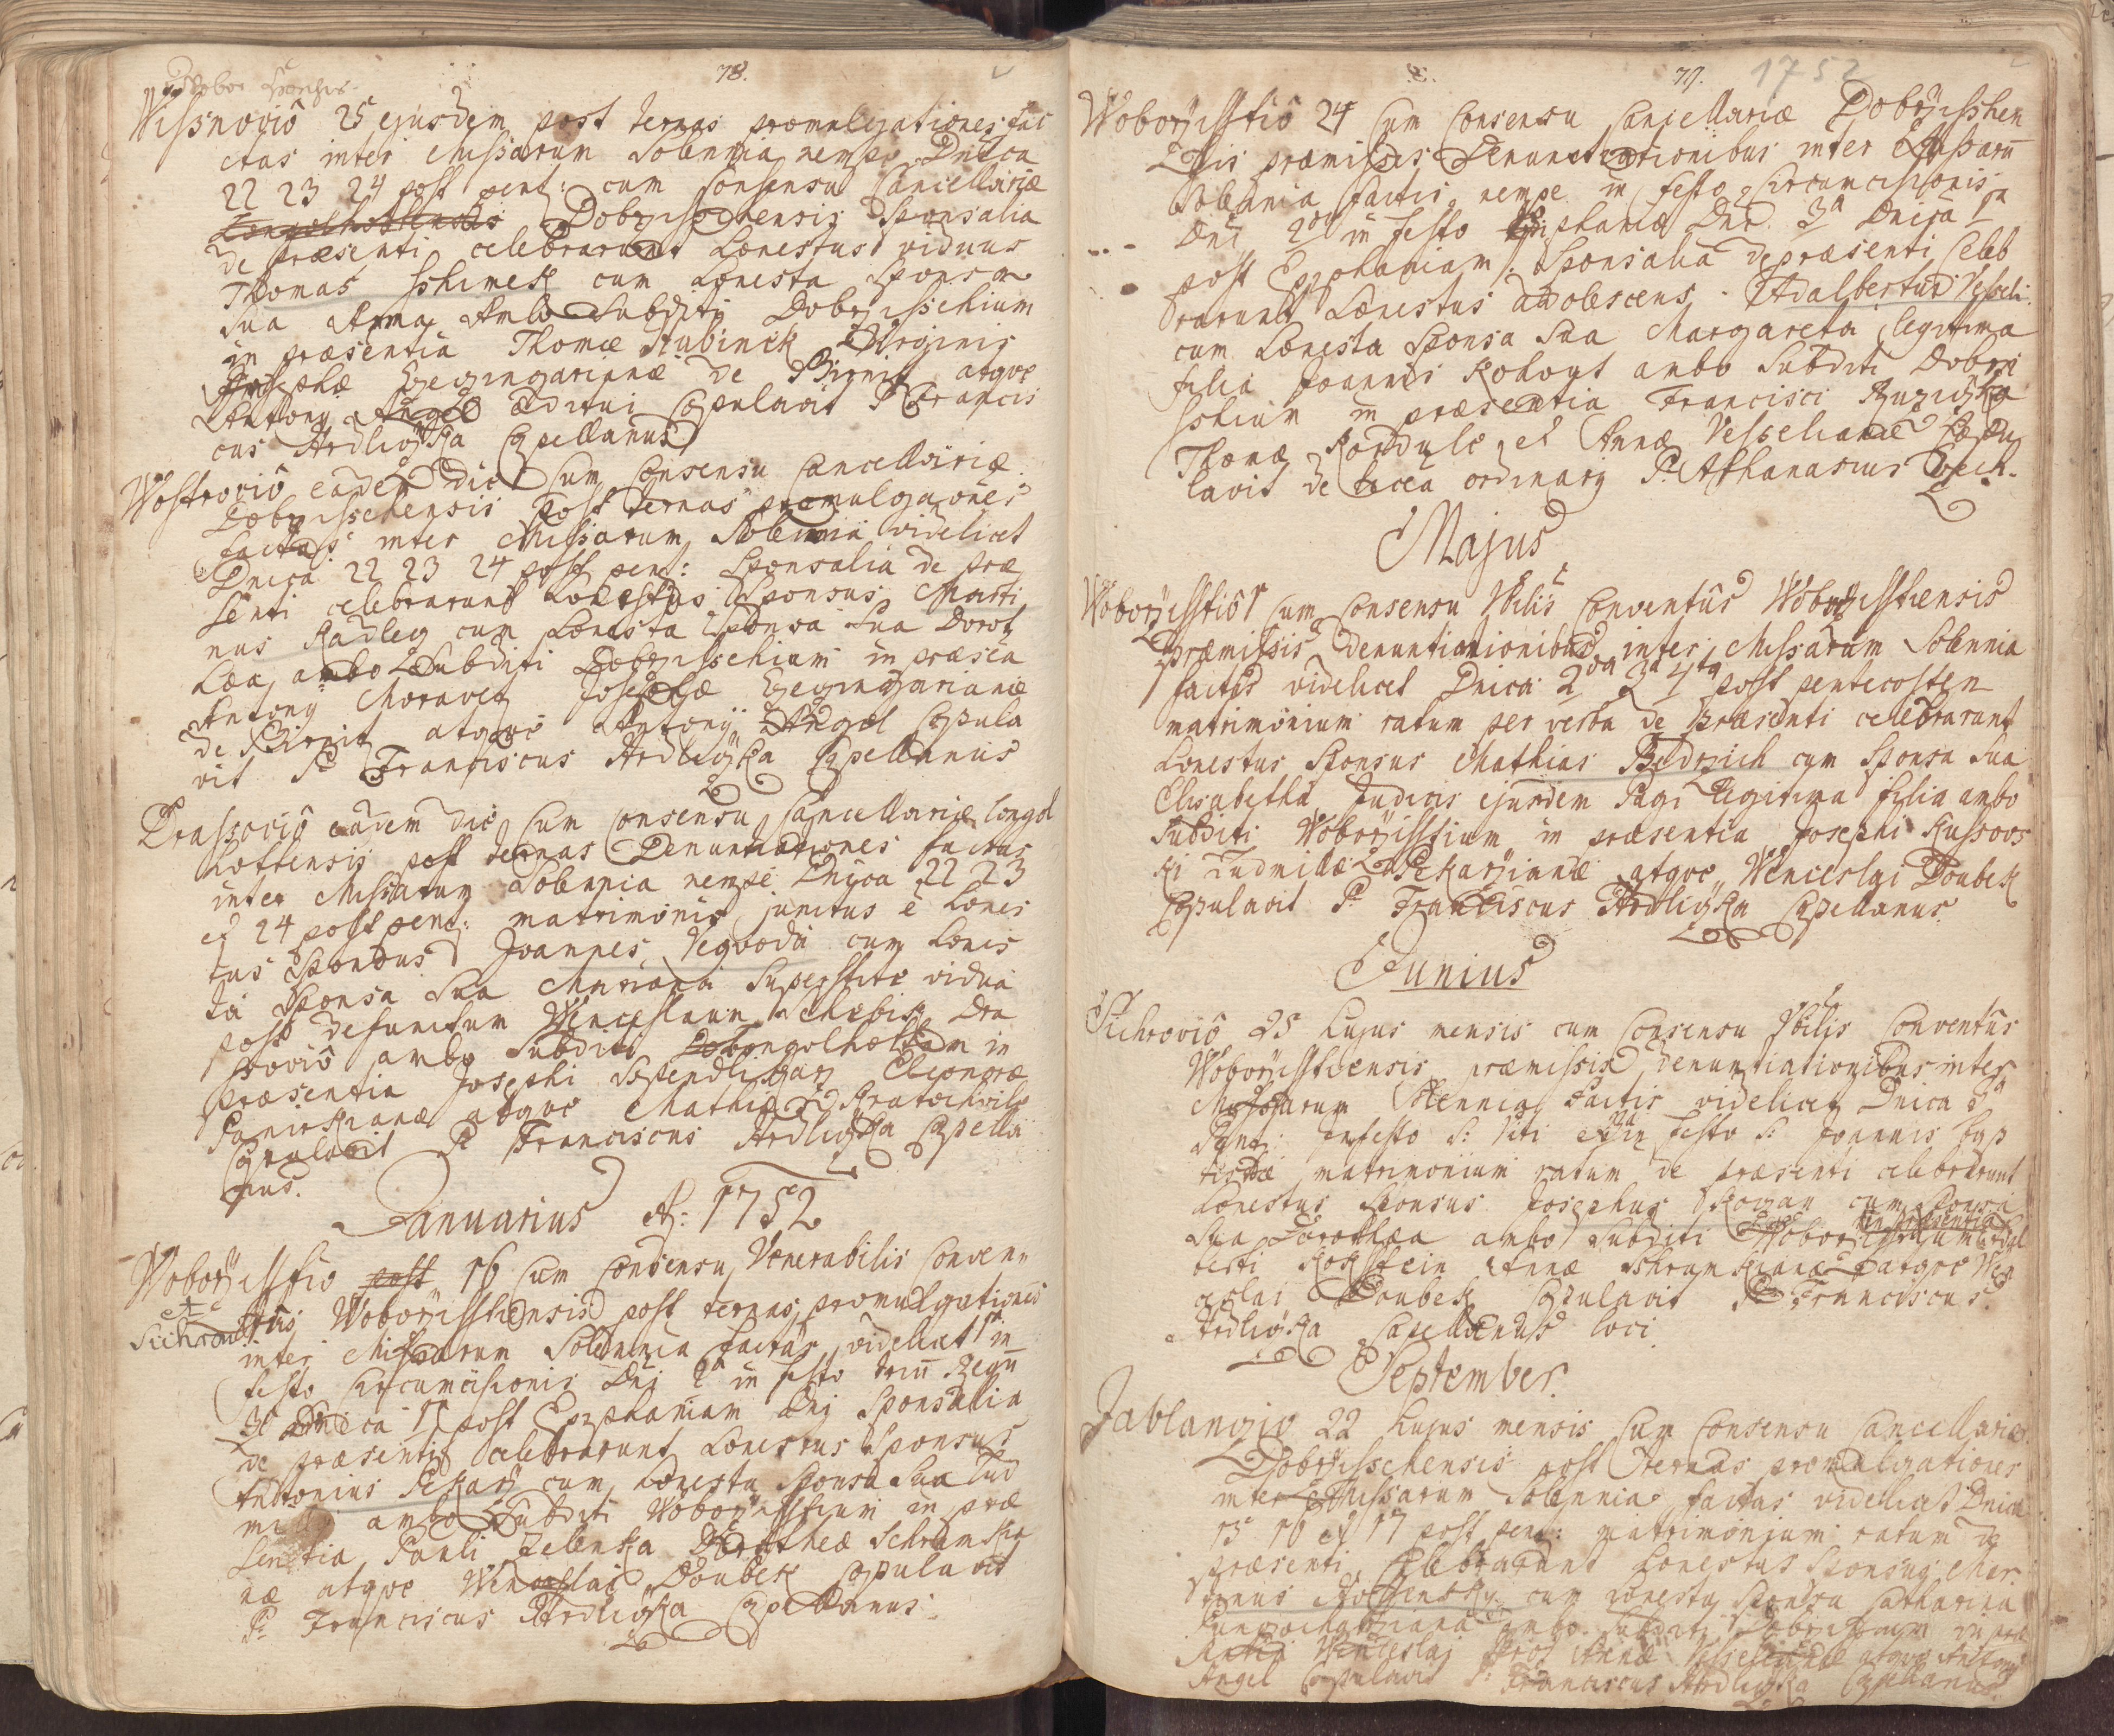 78.
Wissnoviô 25 ejusdem post ternas promulgationes fac
ctas inter Missarum Solennia nempe Dnica
22 23 24 post pent: cum consensu Cancellariæ
Dobrzisschensis Sponsalia
de præsenti celebrarunt honestus viduus
Thomas Schimek cum honesta Sponsa
Sua Anna Ambo Subditi Dobrzisschium
in præsentia Thomæ Stubinek Virginis
Josephæ de atque
Antony Angel æditui Copulavit P. Francis
cus Hrdliczka Capellanus
Wostroviô eadem die Cum Consensu Cancellariæ
Dobrzisschensis Post ternas promulgaones
factas inter Missarum Solennia videlicet
Dnica 22 23 24 post pent: Sponsalia de præ
senti celebrarunt honestus Sponsus Marti
nus Hadleg cum honesta Sponsa Sua Dorot
hæa, ambo Subditi Dobrzisschium in præsen
Antony Moravetz Josephæ
de atque Antonÿ Angel Copula
vit P. Franciscus Hrdliczka Capellanus
Drassoviô eadem die Cum Consensu Cancellariæ Longol
hottensis post ternas Denuntiationes factas
inter Missarum Solennia nempe Dnica 22 23
et 24 post pent: matrimonio junctus è hones
tus Sponsus Joannes Negvoda cum hones
ta Sponsa Sua Mariana Superstite vidua
post defunctum Wenceslaum Chebisk Dra
ssoviô ambo Subditi Longolhottam in
præsentia Josephi Eleonoræ
atque Mathiæ Kratochvile
Copulavit P. Franciscus Hrdliczka Capella
nus.
Januarius A: 1752
Woborzisstio post 16 Cum Consensu Venerabilis Conven
tûs Woborzisstensis post ternas promulgationes
inter Missarum Solennia factas, videlicet 1a in
festo Circumcisionis Dnj 2a in festo trium Regum
3a Dnica 1a post Epiphaniam Dnj Sponsalia
de præsenti celebrarunt honestus Sponsus
Antonius Pekarz cum honesta Sponsa Sua Lud
milla ambo Subditi Woborzisstium in præ
sentia Pauli Jelenka Dorotheæ Schramkia
næ atque Wenceslai Doubek Copulavit
P. Franciscus Hrdliczka Capellanus
79. 1752
Woborzisstiô 24 Cum Consensu Cancellariæ Dobrzisshen
præmissis Denunctiationibus inter Missarum
Solennia factis, nempe in festo Circumcisionis
Dnj 2da in festo Epiphaniæ Dni 3a Dnica 1a
post Epiphaniam. Sponsalia de præsenti Celeb
rarunt honestus adolescens Adalbertus Vesseli
cum honesta Sponsa Sua Margareta legitima
filia Joannis Kohout ambo Subditi Dobrzi
sshium in præsentia Francisci Ruziczka
Thomæ Kordule, et Annæ Vesselianæ Copu
lavit de licea ordinary P. Athanasius
Majus
Woborzisstiô 1 Cum Consensu Vblis Conventûs Woborzisstiensis
præmissis Denuntiationibus inter Missarum Solennia
factis videlicet Dnica 2da 3a 4ta post pentecosten
matrimonium ratum per verba de præsenti celebrarunt
honestus Sponsus Mathias Bedrzich cum Sponsa Sua
Elisabetha, Judicis ejusdem Pagi legitima filia ambo
Subditi Woborzisstium in præsentia Josephi Kussovs
ki Ludmillæ Pekarzianæ atque Wenceslai Doubek
Copulavit P. Franciscus Hrdliczka Capellanus.
Junius
Sichroviô 25 hujus mensis cum Consensu Vblis Conventûs
Woborzisstiensis præmissis denuntiationibus inter
Missarum Solennia factis videlicet Dnica
Pent: in festo S: Viti et in festo S: Joannis bap
tistæ matrimonium ratum de præsenti celebrarunt
honestus Sponsus Josephus Kozan cum Sponsa
Sua Dorothæa ambo Subditi Woborzisstium in præsentia
berti Kokstein Annæ Schramkianæ atque Wen
ceslai Doubek Copulavit P. Franciscus
Hrdliczka Capellanus loci
September.
Jablanzio 22 hujus mensis Cum Consensu Cancellariæ
Dobrzisschensis post ternas promulgationes
inter Missarum Solennia factas videlicet Dnica
15 16 et 17 post pent: matrimonium ratum de
præsenti Celebrarunt honestus Sponsus Mar
tinus cum honesta Sponsa Catharina
ambo Subditi Dobrzisschium in præ
Wenceslaj Annæ Vesselianæ atque Antony
Angel Copulavit P: Franciscus Hrdliczka Capellanus.